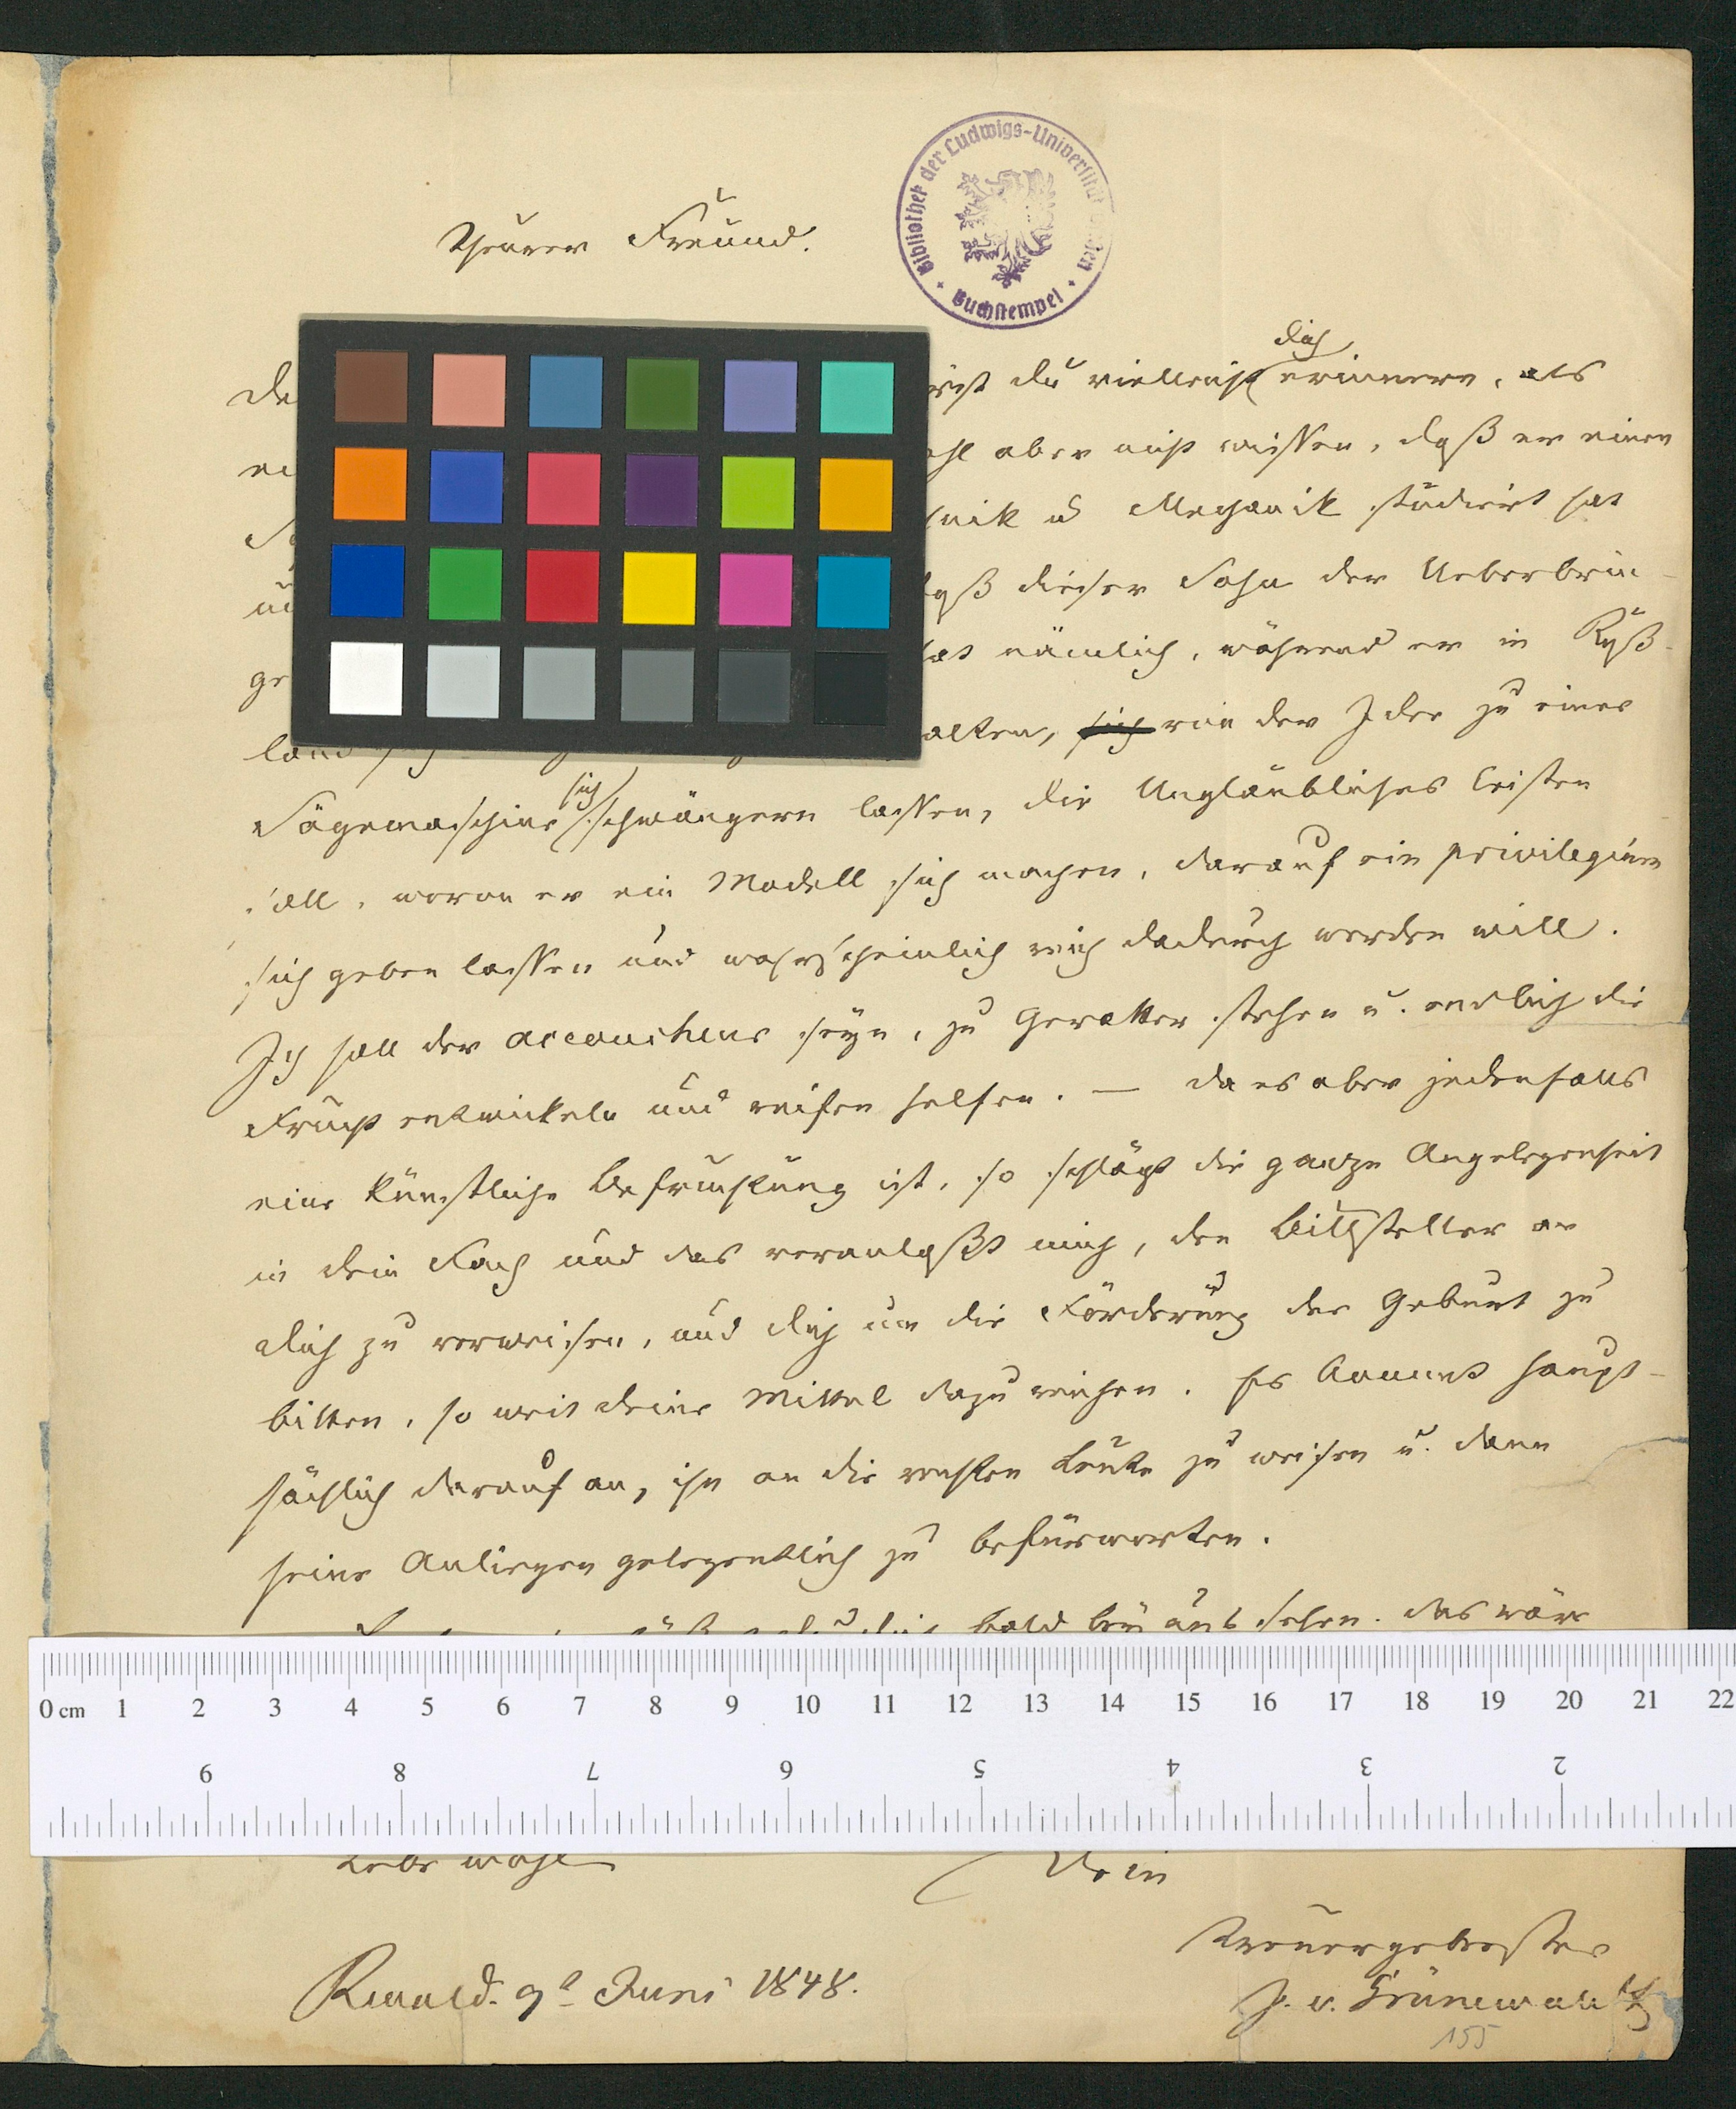 Bibliothek der Ludwigs-Universität Gießen
Buchstempel
Theurer Freund!
dich
De wirst du vielleicht erinnern, als
ei wohl aber nicht wissen, daß er einen
So hnik u Mechanik studiert hat
un daß dieser Sohn der Ueberbrin-
ge hat nämlich, während er in Ruß-
land alten, sich von der Idee zu einer
sich
Sägemaschine schwängern lassen, die Unglaubliches leisten
soll, wovon er ein Modell sich machen, darauf ein privilegium
sich geben lassen und wahrscheinlich reich dadurch werden will.
Ich soll der accoucheur seyn, zu Gevatter stehen u. endlich die
Frucht entwickeln und reifen helfen. — da es aber jedenfalls
eine künstliche Befruchtung ist, so schlägt die ganze Angelegenheit
in dein Fach und das veranlaßt mich, den Bittsteller an
dich zu verweisen, und dich um die Förderung der Geburt zu
bitten, so weit deine Mittel dazu reichen. Es kommt haupt-
sächlich darauf an, ihn an die rechten Leute zu weisen u. dann
seine Anliegen gelegentlich zu befürworten.
bald bei uns sehen. das wäre
0 cm 1 2 3 4 5 6 7 8 9 10 11 12 13 14 15 16 17 18 19 20 21 22
9 8 7 6 5 4 3 2
Lebe wohl
Dein
treuergebenster
J. v. Grünewaldt
9t Juni 1848.
155